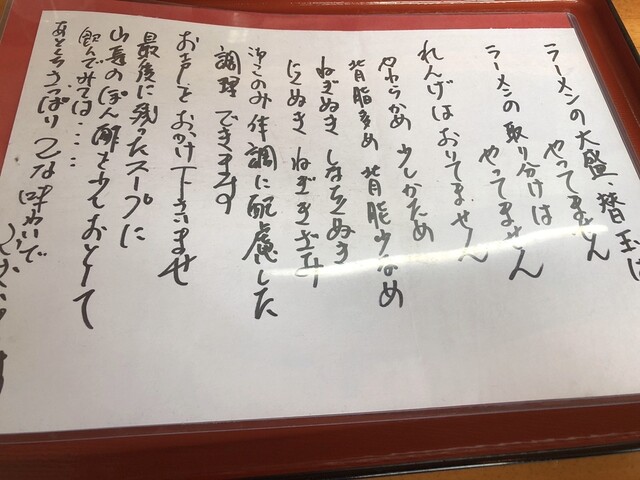 ラーメンの大盛、替玉は
やってません
ラーメンの取り分けは
やってません
れんげはおりてません
やわらかめ 少しかため
背脂多め 背脂少なめ
ねぎぬき しなちくぬき
にくぬき ねぎきざみ
御このみ体調に配慮した
調理できます
お声をおかけ下さいませ
最後に残ったスープに
山長のぽん酢を少しおとして
飲んでみては・・・・
あとくちさっぱり 乙な味わいで